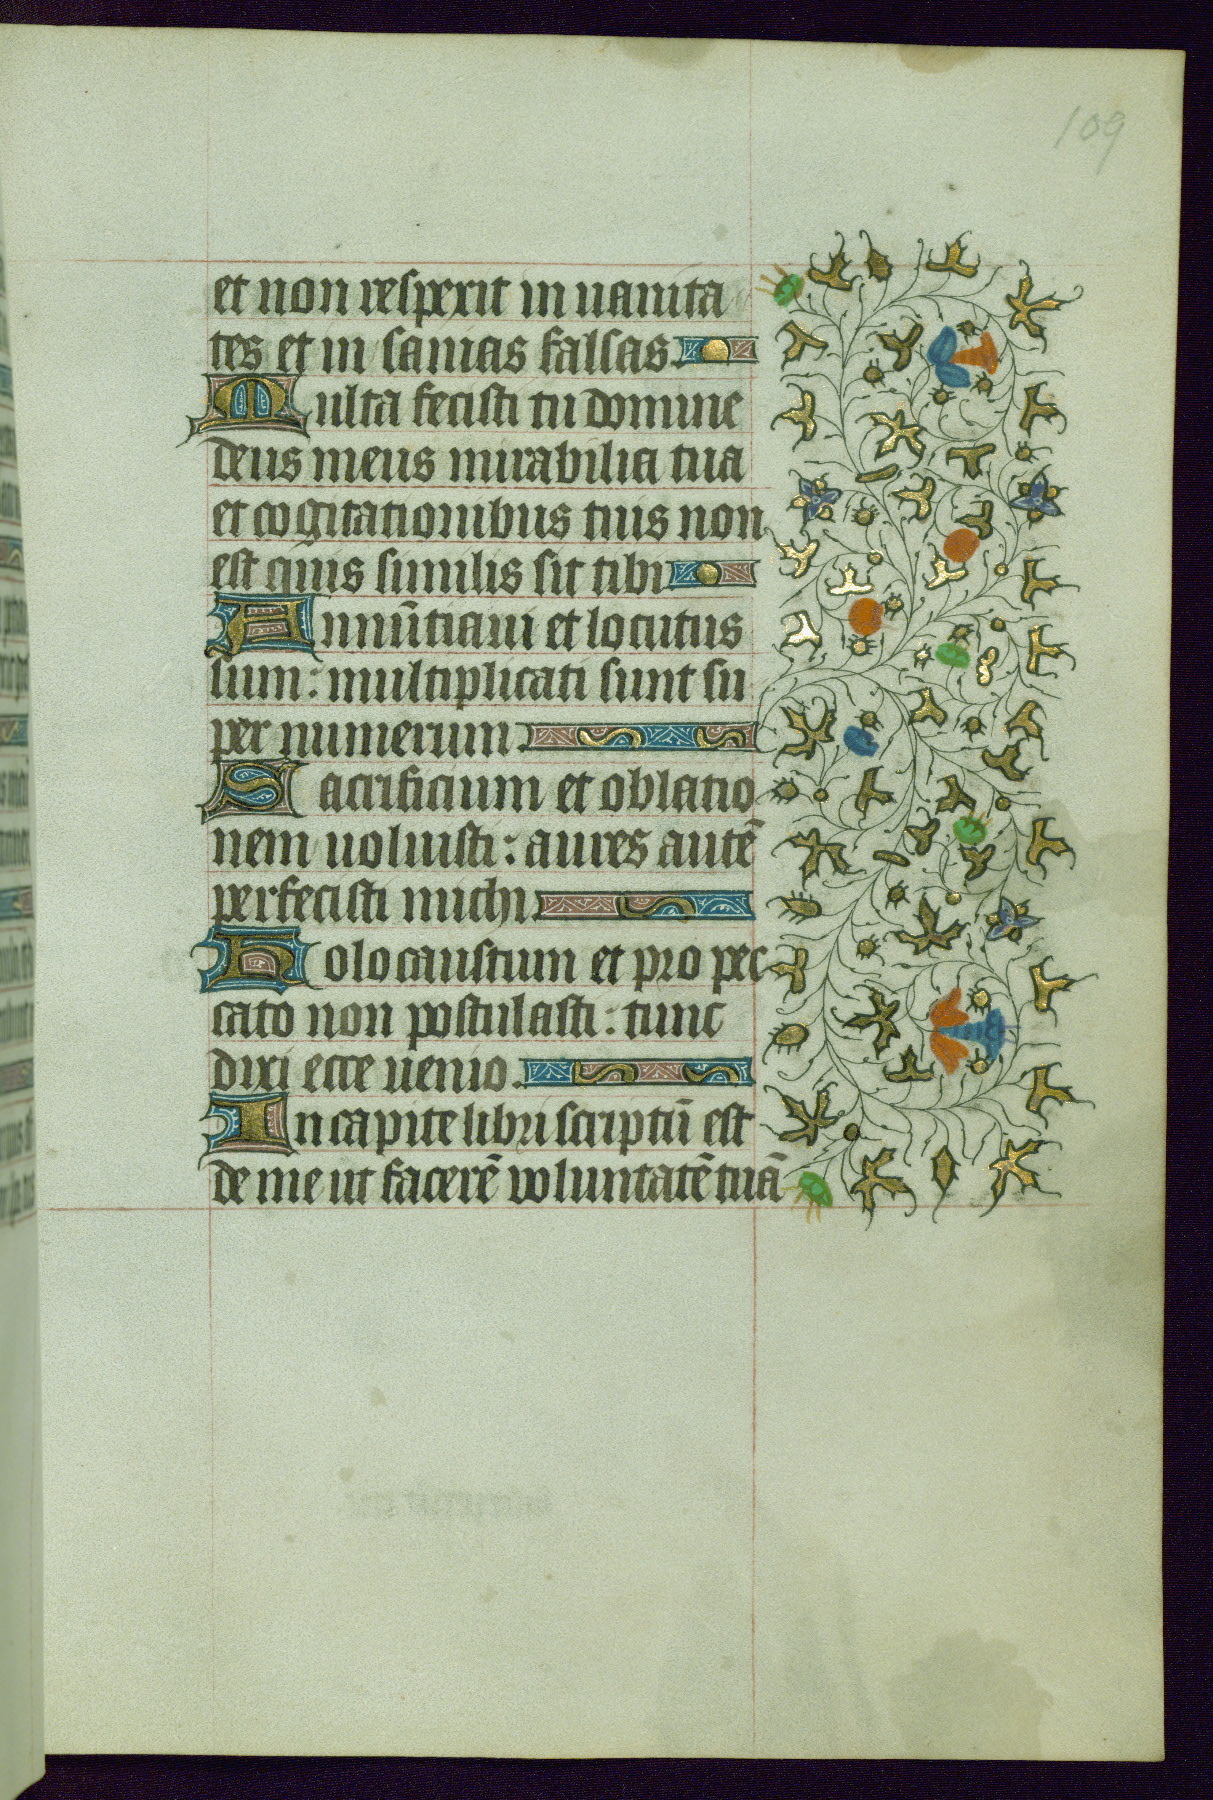 109
et non respexit in uanita
tes et in sanias falsas.
Multa fecisti tu domine
deus meus mirabilia tua
et cogitationibus tuis non
est quis similis sit tibi
Annūtiaui et locutus
sum: multiplicati sunt su
per numerum.
Sacrificium et oblatio
nem uoluisti: aures autē
perfecisti michi.
Holocaustum et pro pec
cato non postulasti: tunc
dixi ecce uenio.
In capite libri scriptū est
de me ut facerē voluntatē tuā